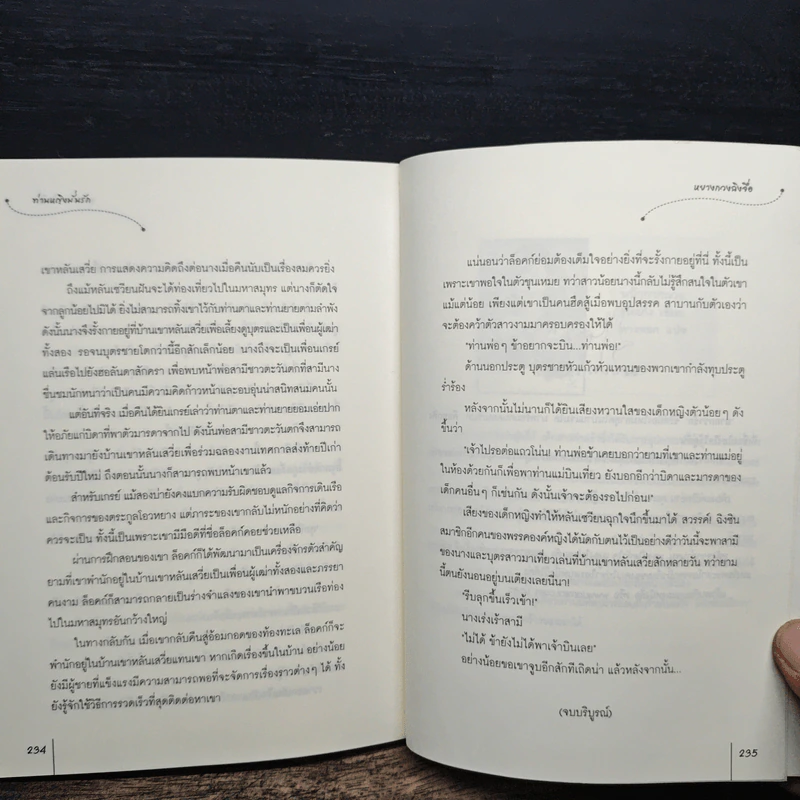 ท่านหญิงพันรัก
เขาหลันเสวี่ย การแสดงความคิดถึงต่อนางเมื่อคืนนับเป็นเรื่องสมควรยิ่ง
ถึงแม้หลันเซวียนฝันจะได้ท่องเที่ยวไปในมหาสมุทร แต่นางก็ตัดใจ
จากลูกน้อยไปมิได้ ยิ่งไม่สามารถทิ้งเขาไว้กับท่านตาและท่านยายตามลำพัง
ดังนั้นนางจึงรั้งกายอยู่ที่บ้านเขาหลันเสวี่ยเพื่อเลี้ยงดูบุตรและเป็นเพื่อนผู้เฒ่า
ทั้งสอง รอจนบุตรชายโตกว่านี้อีกสักเล็กน้อย นางถึงจะเป็นเพื่อนเกรย์
แล่นเรือไปยังฮอลันดาสักครา เพื่อพบหน้าพ่อสามีชาวตะวันตกที่สามีนาง
ชื่นชมนักหนาว่าเป็นคนมีความคิดก้าวหน้าและอบอุ่นน่าสนิทสนมคนนั้น
แต่อันที่จริง เมื่อคืนได้ยินเกรย์เล่าว่าท่านตาและท่านยายยอมเอ่ยปาก
ให้อภัยแก่บิดาที่พาตัวมารดาจากไป ดังนั้นพ่อสามีชาวตะวันตกจึงสามารถ
เดินทางมายังบ้านเขาหลันเสวี่ยเพื่อร่วมฉลองงานเทศกาลส่งท้ายปีเก่า
ต้อนรับปีใหม่ ถึงตอนนั้นนางก็สามารถพบหน้าเขาแล้ว
สำหรับเกรย์ แม้สองบ่ายังคงแบกความรับผิดชอบดูแลกิจการเดินเรือ
และกิจการของตระกูลโอวหยาง แต่ภาระของเขากลับไม่หนักอย่างที่คิดว่า
ควรจะเป็น ทั้งนี้เพราะเขามีมือดีที่ชื่อล็อคก์คอยช่วยเหลือ
ผ่านการฝึกสอนของเขา ล็อคก์ก็ได้พัฒนามาเป็นเครื่องจักรตัวสำคัญ
ยามที่เขาพำนักอยู่ในบ้านเขาหลันเสวี่ยเป็นเพื่อนผู้เฒ่าทั้งสองและภรรยา
คนงาม ล็อคก์ก็สามารถกลายเป็นร่างจำแลงของเขานำพาขบวนเรือท่อง
ไปในมหาสมุทรอันกว้างใหญ่
ในทางกลับกัน เมื่อเขากลับคืนสู่อ้อมกอดของท้องทะเล ล็อคก์ก็จะ
พำนักอยู่ในบ้านเขาหลันเสวี่ยแทนเขา หากเกิดเรื่องขึ้นในบ้าน อย่างน้อย
ยังมีผู้ชายที่แข็งแรงมีความสามารถพอที่จะจัดการเรื่องราวต่างๆ ได้ ทั้ง
ยังรู้จักใช้วิธีการรวดเร็วที่สุดติดต่อหาเขา
234
หยางกวงฉิงจื่อ
แน่นอนว่าล็อคก์ย่อมต้องเต็มใจอย่างยิ่งที่จะรั้งกายอยู่ที่นี่ ทั้งนี้เป็น
เพราะเขาพอใจในตัวชุนเหมย ทว่าสาวน้อยนางนี้กลับไม่รู้สึกสนใจในตัวเขา
แม้แต่น้อย เพียงแต่เขาเป็นคนฮึดสู้เมื่อพบอุปสรรค สาบานกับตัวเองว่า
จะต้องคว้าตัวสาวงามมาครอบครองให้ได้
"ท่านพ่อๆ ข้าอยากจะบิน...ท่านพ่อ!"
ด้านนอกประตู บุตรชายหัวแก้วหัวแหวนของพวกเขากำลังทุบประตู
ร่ำร้อง
หลังจากนั้นไม่นานก็ได้ยินเสียงหวานใสของเด็กหญิงตัวน้อยๆ ดัง
ขึ้นว่า
"เจ้าไปรอต่อแถวโน่น! ท่านพ่อข้าเคยบอกว่ายามที่เขาและท่านแม่อยู่
ในห้องด้วยกันก็เพื่อพาท่านแม่บินเที่ยว ยังบอกอีกว่าบิดาและมารดาของ
เด็กคนอื่นๆ ก็เช่นกัน ดังนั้นเจ้าจะต้องรอไปก่อน!"
เสียงของเด็กหญิงทำให้หลันเซวียนฉุกใจนึกขึ้นมาได้ สวรรค์! ฉิงซิน
สมาชิกอีกคนของพรรคองค์หญิงได้นัดกับตนไว้เป็นอย่างดีว่าวันนี้จะพาสามี
ของนางและบุตรสาวมาเที่ยวเล่นที่บ้านเขาหลันเสวี่ยสักหลายวัน ทว่ายาม
นี้ตนยังนอนอยู่บนเตียงเลยนี่นา!
"รีบลุกขึ้นเร็วเข้า!"
นางเร่งเร้าสามี
"ไม่ได้ ข้ายังไม่ได้พาเจ้าบินเลย"
อย่างน้อยขอเขาจูบอีกสักทีเถิดน่า แล้วหลังจากนั้น...
(จบบริบูรณ์)
235